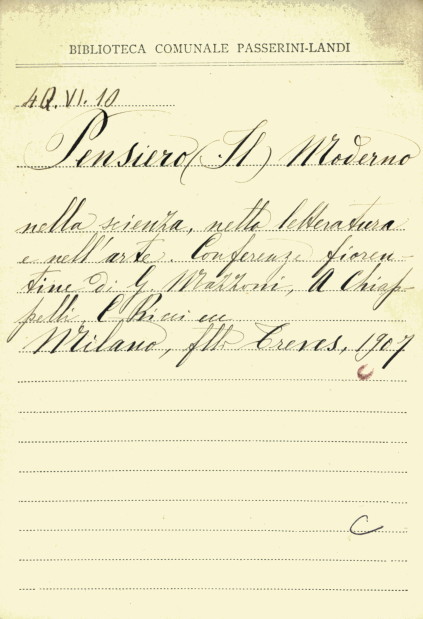 BIBLIOTECA COMUNALE PASSERINI-LANDI
4Q.VI.10
Pensiero (Il) Moderno
nella scienza, nella letteratura
e nell'arte. Conferenze fioren-
tine di G. Mazzoni, A Chiap-
pelli, C Ricci ecc
Milano, flli Treves, 1907
C